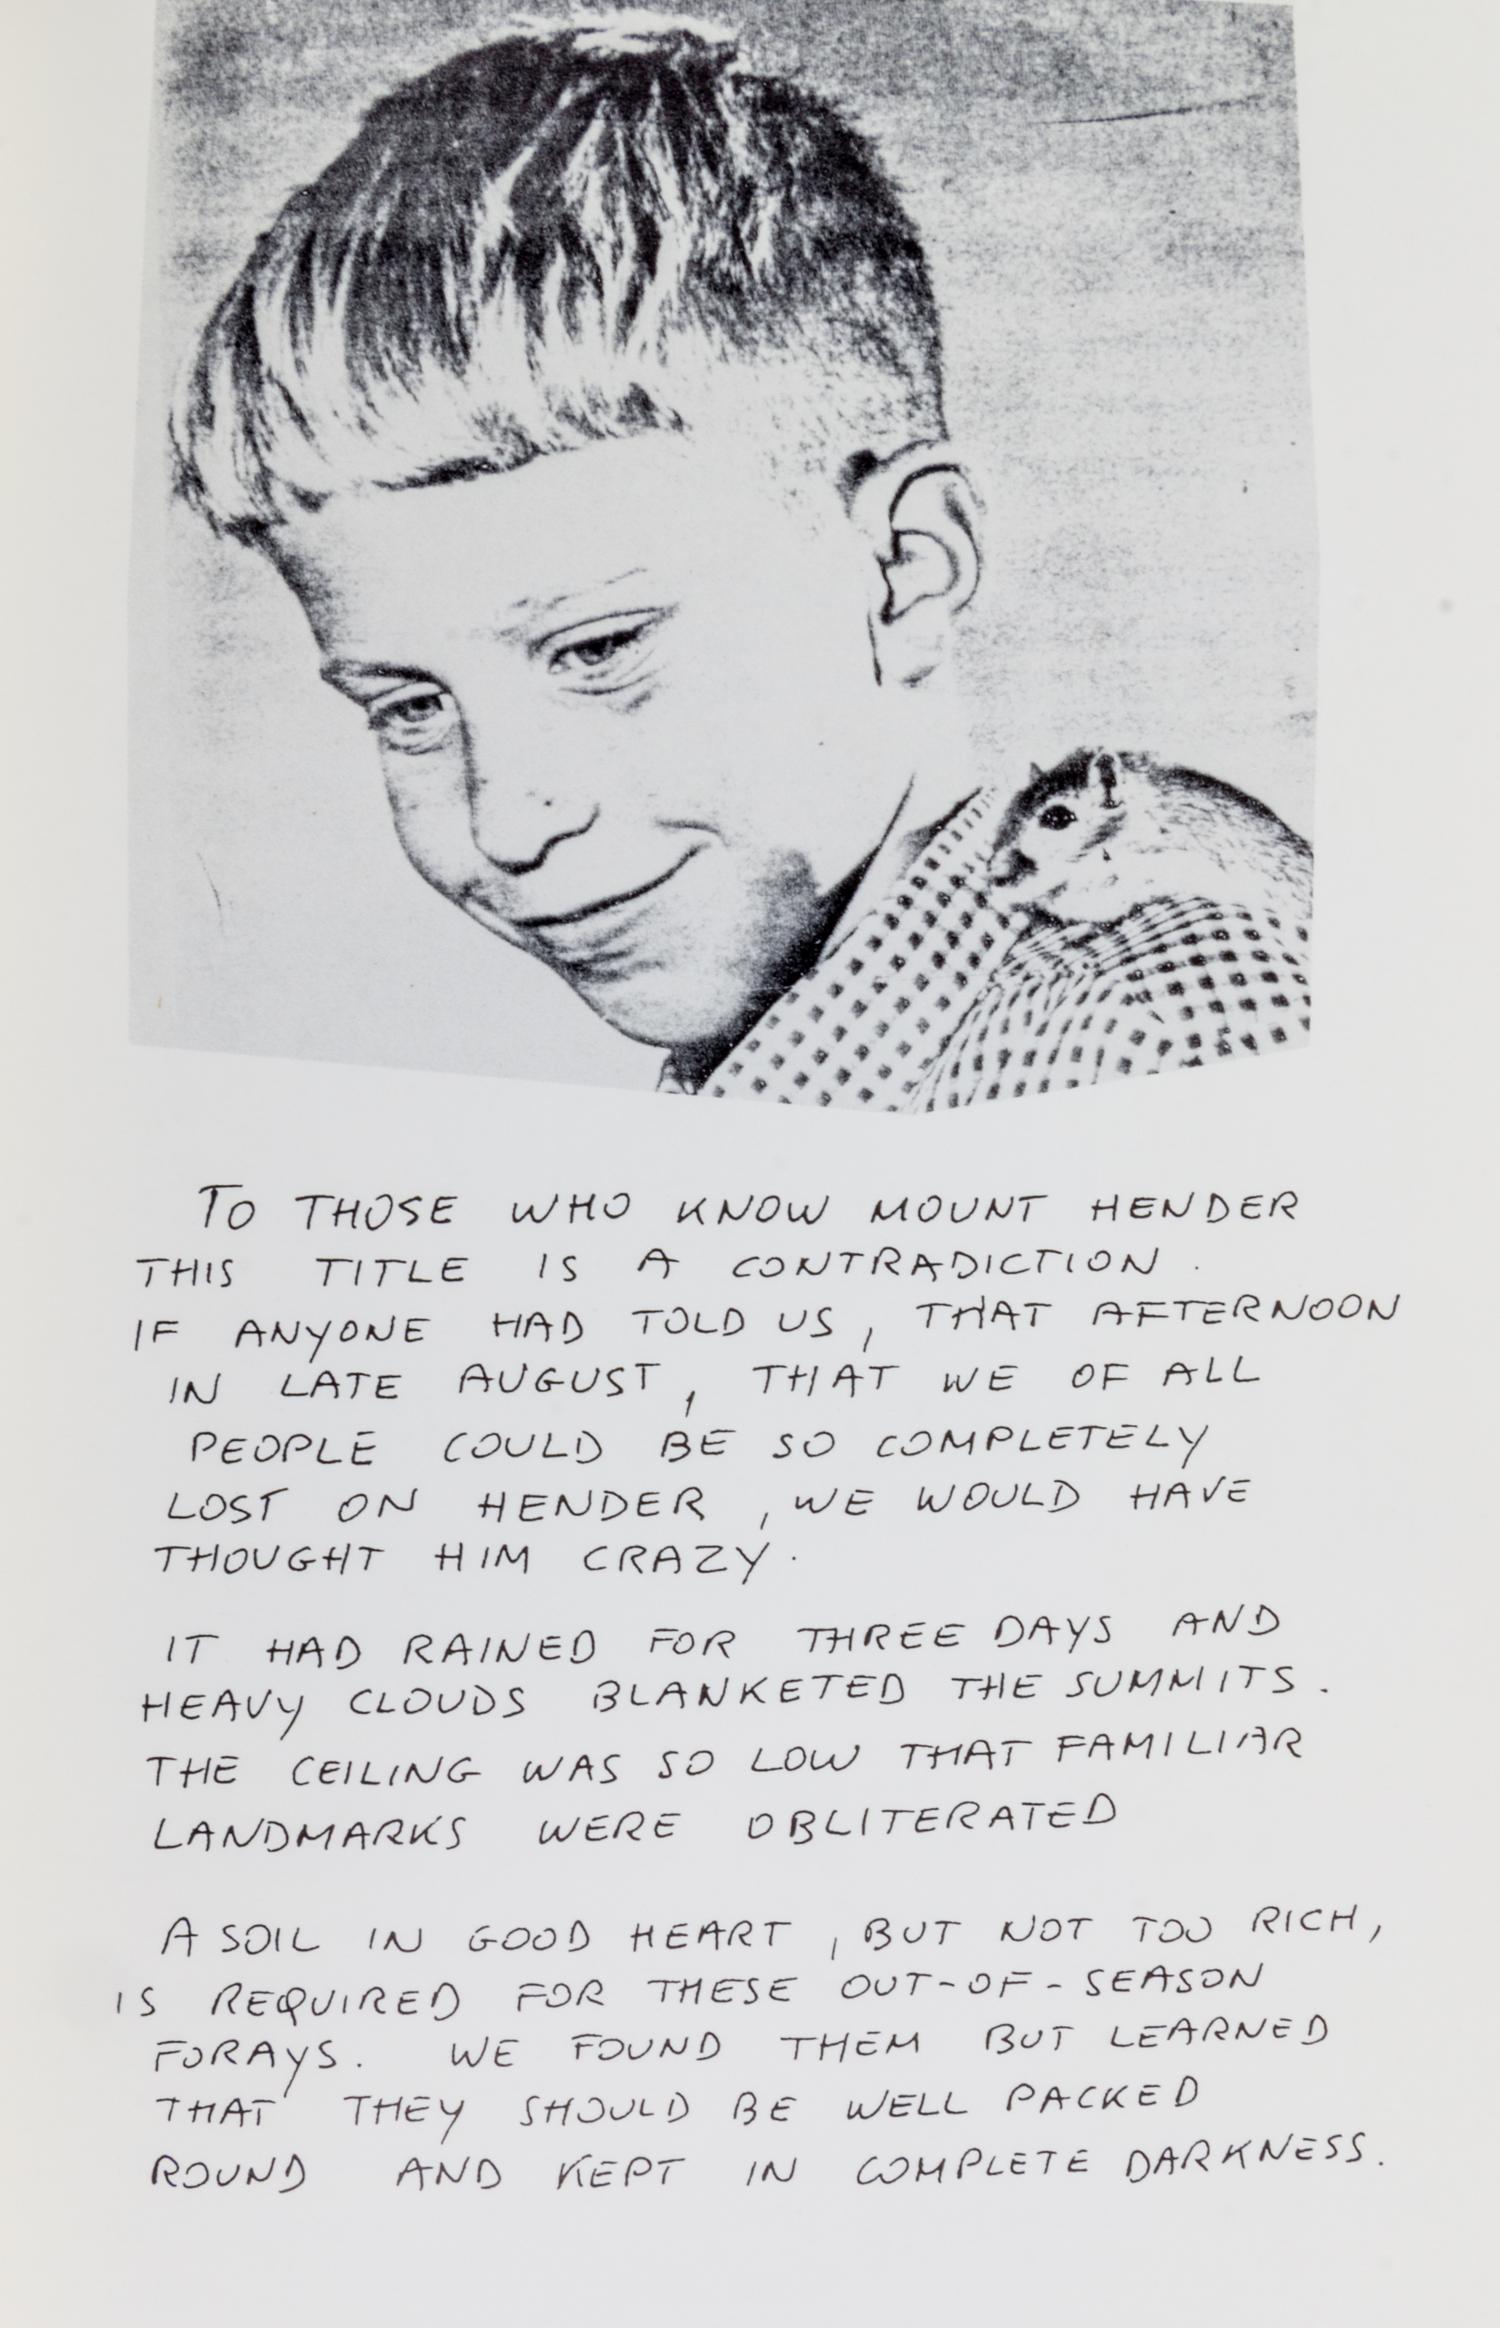 TO THOSE WHO KNOW MOUNT HENDER
THIS TITLE IS A CONTRADICTION.
IF ANYONE HAD TOLD US, THAT AFTERNOON
IN LATE AUGUST, THAT WE OF ALL
PEOPLE COULD BE SO COMPLETELY
LOST ON HENDER, WE WOULD HAVE
THOUGHT HIM CRAZY.
IT HAD RAINED FOR THREE DAYS AND
HEAVY CLOUDS BLANKETED THE SUMMITS.
THE CEILING WAS SO LOW THAT FAMILIAR
LANDMARKS WERE OBLITERATED
A SOIL IN GOOD HEART, BUT NOT TOO RICH,
IS REQUIRED FOR THESE OUT-OF-SEASON
FORAYS. WE FOUND THEM BUT LEARNED
THAT THEY SHOULD BE WELL PACKED
ROUND AND KEPT IN COMPLETE DARKNESS.